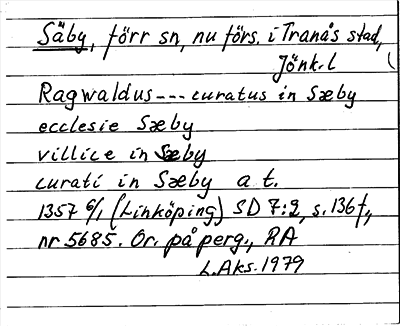 Säby, förr sn, nu förs. i Tranås stad,
Jönk.l
Ragwaldus --- curatus in Sæby
ecclesie Sæby
villice in Sæby
curati in Sæby a. t.
1357 6/1 (Linköping) SD 7:2, s. 136 f,
nr 5685. Or. på perg., RA
L.Aks. 1979